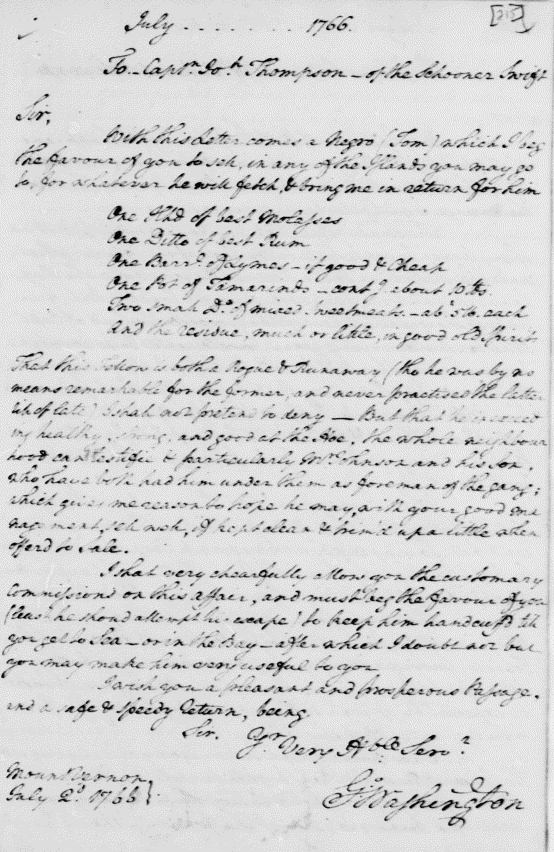 [213]
July . . . . . . . . 1766.
To - Captn. Josh. Thompson - of the Schooner Swift
Sir,
With this Letter comes a Negro (Tom) which I beg
the favour of you to sell, in any of the Islands you may go
to, for whatever he will fetch, & bring me in return for him
One Hhd of best Molasses
One Ditto of best Rum
One Barrl. of Lymes - if good & Cheap
One Pot of Tamarinds - contg. about 10 lbs.
Two small Do. of mixed Sweetmeats - abt. 5 lb. each
And the residue, much or little, in good old Spirits
That this Fellow is both a Rogue & Runaway (tho. he was by no
means remarkable for the former, and never practised the latter
till of late) I shall not pretend to deny - But that he is exceed
ing healthy, strong, and good at the Hoe, the whole neighbour
hood can testifie & particularly Mr. Johnson and his Son,
who have both had him under them as foreman of the gang;
which gives me reason to hope he may, with your good ma
nagement, sell well, if kept clean & trim'd up a little when
offerd to Sale.
I shall very chearfully allow you the customary
Commissions on this affair, and must beg the favour of you
(least he shoud attempt his escape) to keep him handcuffd till
you get to Sea - or in the Bay - after which I doubt not but
you may make him very useful to you.
I wish you a pleasant and prosperous Passage,
and a safe & speedy return, being,
Sir, Yr. Very Hble Servt.
Mount Vernon,
July 2d. 1766.
Go: Washington